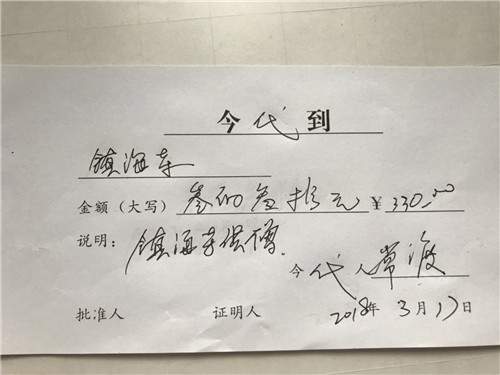 今代到
镇海寺
金额(大写)叁佰叁拾元 ¥ 330.00
说明: 镇海寺供
今代人常渡
批准人 证明人 2018年3月17日